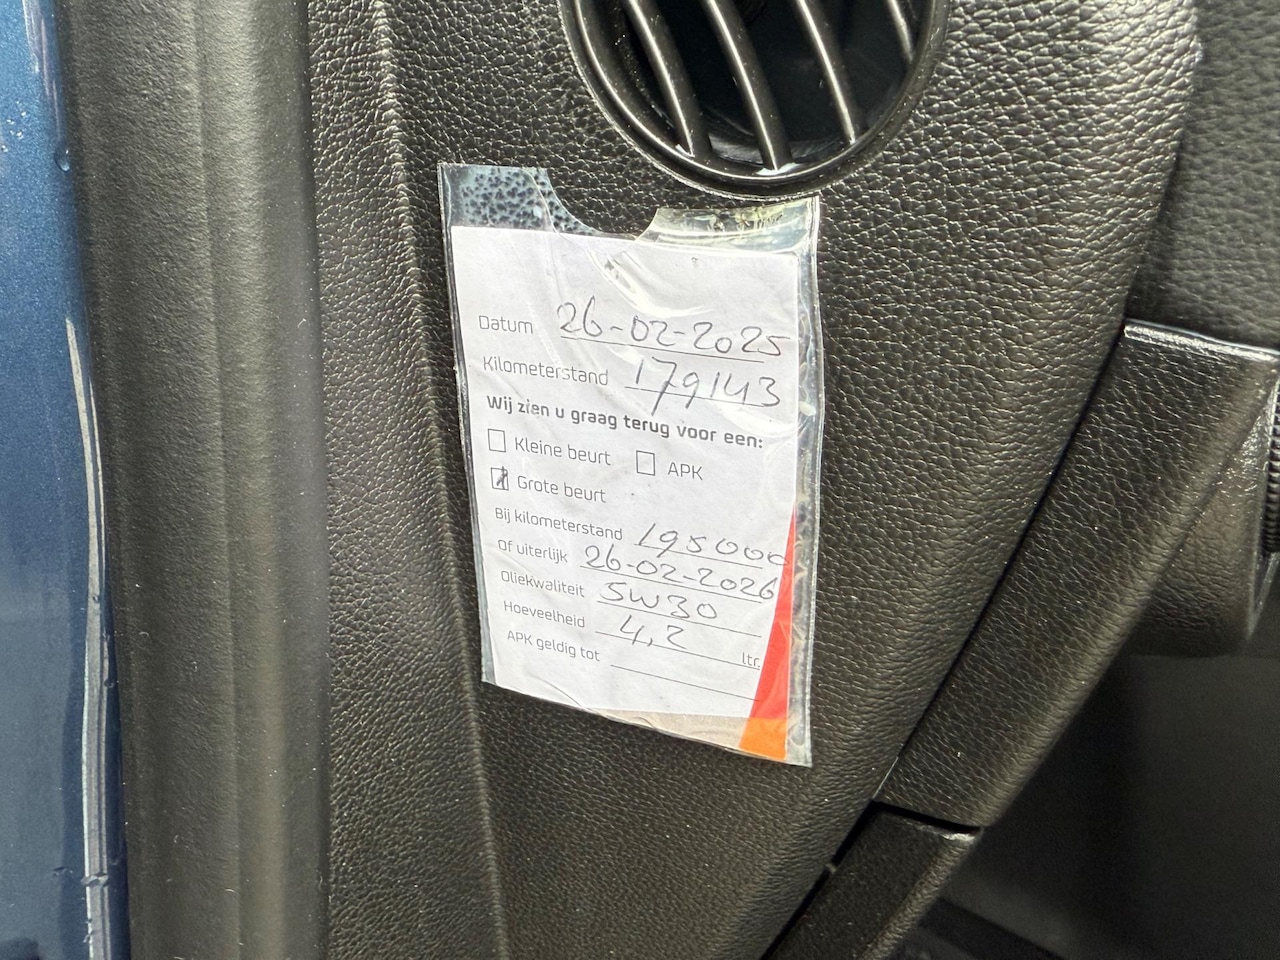 Datum 26-02-2025
Kilometerstand 179143
Wij zien u graag terug voor een:
Kleine beurt APK
Grote beurt
Bij kilometerstand 195000
Of uiterlijk 26-02-2026
Oliekwaliteit 5W30
Hoeveelheid 4,2 ltr.
APK geldig tot